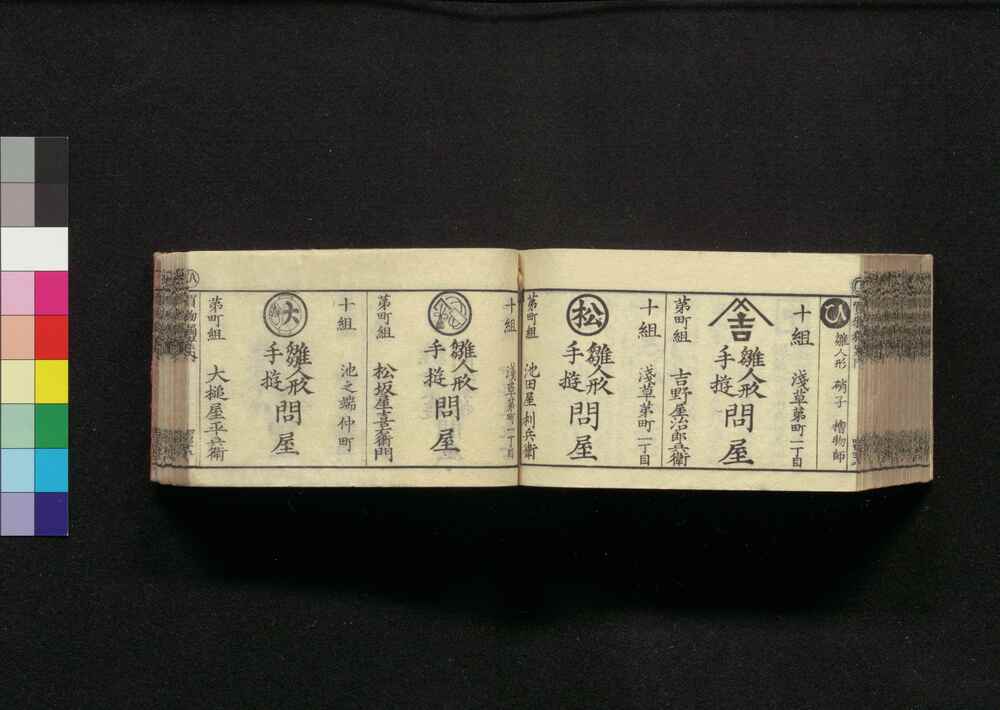 ひ 雛人形 硝子 檜物師
十組 淺草茅町一丁目
吉
雛人形
手遊
問屋
茅町組 吉野屋治郎兵衛
十組 淺草茅町一丁目
松
雛人形
手遊
問屋
茅町組 池田屋利兵衛
十組 淺草茅町一丁目
雛人形
手遊
問屋
茅町組 松坂屋吉右衛門
十組 池之端仲町
大
雛人形
手遊
問屋
茅町組 大槌屋平兵衛